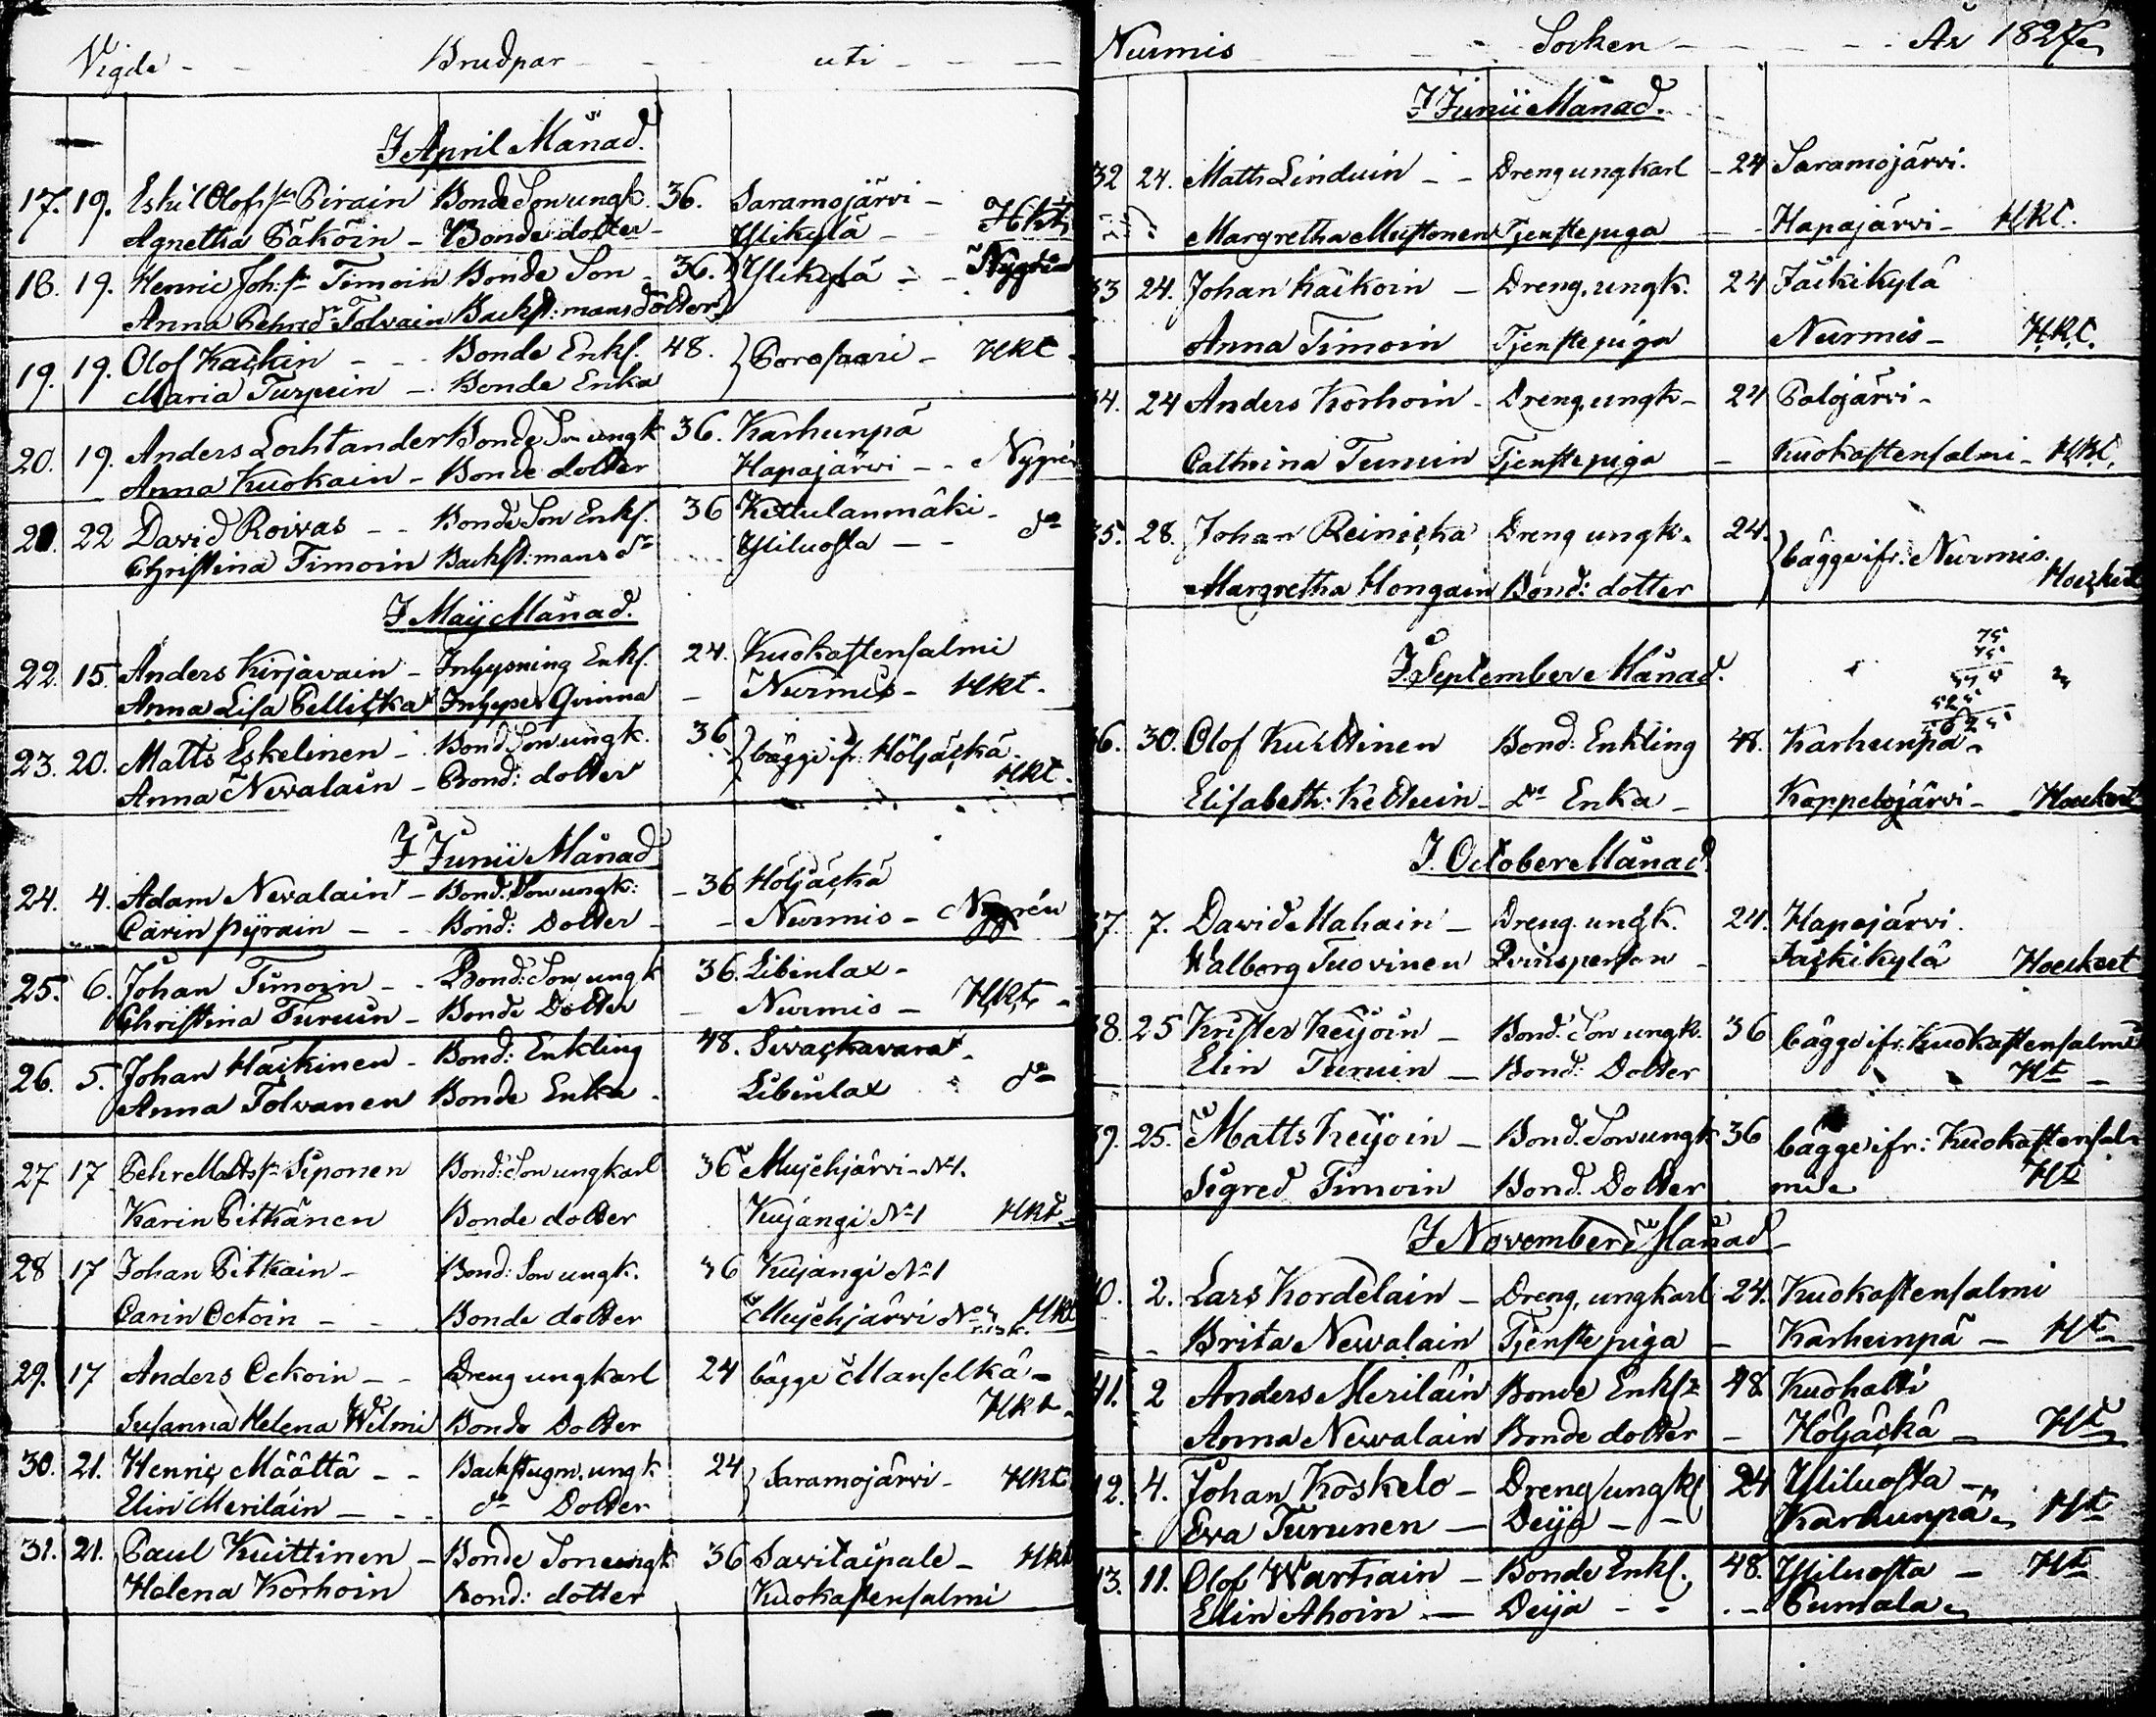 Vigde - - Brudpar - - uti - - -
I April Månad.
17. 19. Eskil Olofs sn Pirain Bonde Son ungk. 36. Saramojärvi - Hkt
Agnetha Päköin - Bonde dotter - Ylikylä -
18. 19. Henric Joh: sn Timoin Bonde Son - 36. } Ylikylä - - Nygrén
Anna Pehrsd r Tolvain Backst: mans dotter
19. 19. Olof Kackin - - Bonde Enkl. 48. } Porosaari - HKt -
Maria Turpein - Bonde Enka
20. 19. Anders Lochtander Bonde Son ungk 36. Karhunpä
Anna Kuokain - Bonde dotter Hapajärvi - - Nygrén
21. 22 David Roivas - - Bonde Son Enkl. 36 Kettulanmäki - do
Christina Timoin Backst: mans dr Yliluosta - -
I Maij Månad.
22. 15. Anders Kirjavain - Inhysning Enkl. 24. Kuokastensalmi
Anna Lisa Pellicka Inhyses Qvinna - Nurmis - Hkt.
23. 20. Matts Eskelinen - Bond Son ungk. 36 } bägge ifr: Höljäckä
Anna Nevalain - Bond: dotter HKt.
I Junii Månad
24. 4. Adam Nevalain - Bond. Son ungk: - 36 Höljäckä
Carin Pÿrain - - Bond: Dotter - - Nurmis - Nygrén
25. 6. Johan Timoin - - Bond: Son ungk 36. Libinlax -
Christina Turuin - Bonde Dotter - Nurmis - HKt -
26. 5. Johan Häickinen - Bond: Enkling 48. Sivackavara -
Anna Tolvanen Bonde Enka - Libinlax do
27 17 Pehr Matts sn Siponen Bond: Son ungkarl 36 Mujehjärvi No 1.
Karin Pitkänen Bonde dotter Kujangi No 1 HKt -
28 17 Johan Pitkain - Bond: Son ungk. 36 Kujangi No 1
Carin Octoin - - Bonde dotter Mujehjärvi No HKt
29. 17 Anders Ockoin - - Dreng ungkarl 24 bägge Manselkä -
Susanna Helena Wilmi Bonde Dotter Hkt -
30. 21. Henric Määttä - - Backstugm. ungk 24 } Saramojärvi - HKt
Elin Meriläin - - do Dotter
31. 21. Paul Kuittinen - Bonde Son ungk 36 Savitaipale - HKt
Helena Korhoin Bond: dotter Kuokastensalmi
Nurmis - - Socken - - - År 1827
I Junii Månad.
32 24. Matts Linduin - - Dreng ungkarl - 24 Saramojärvi.
Margretha Mustonen Tjenstepiga - - Hapajärvi - HKt.
33 24. Johan Käckoin - Dreng. ungk. 24 Jäckikylä
Anna Timoin Tjenstepiga Nurmis - H.K.t.
34. 24 Anders Korhoin - Dreng. ungk - 24 Palojärvi -
Cathrina Turuin Tjenstepiga - Kuokastensalmi - HKt.
35. 28. Johan Reinicka Dreng ungk. 24. } bägge ifr. Nurmis.
Margretha Hongain Bond: dotter Hoeckert
I September Månad.
75
75
525
5625
36. 30. Olof Kuittinen Bond: Enkling 48. Karhunpä -
Elisabeth: Kettuin - Dr Enka - Koppelojärvi - Hoeckert
I. October Månad
37. 7. David Mahain - Dreng. ungk. 24. Hapajärvi.
Walborg Tuovinen Qvinsperson - Jäckikylä Hoeckert
38. 25 Krister Keÿoin - Bond. Son ungk. 36 bägge ifr. Kuokastensalmi
Elin Turuin - Bond: Dotter Ht -
39. 25. Matts Keÿoin - Bond. Son ungk 36 bägge ifr: Kuokastensal-
Sigred Timoin Bond. Dotter mi Ht
I November Månad
40. 2. Lars Kordelain - Dreng, ungkarl 24. Kuokastensalmi
- Brita Nevalain Tjenste piga - Karhunpä - Ht
41. 2 Anders Meriläin Bonde Enkl. 48 Kuohatti
Anna Nevalain Bonde dotter - Höljäckä - Ht
42. 4. Johan Koskelo - Dreng ungkl 24 Yliluosta -
Eva Turunen - Deija - - Karhunpä - Ht
43. 11. Olof Wartiain - Bonde Enkl. 48. Yliluosta - Ht
Elin Ahoin - Deija - - - Pumala